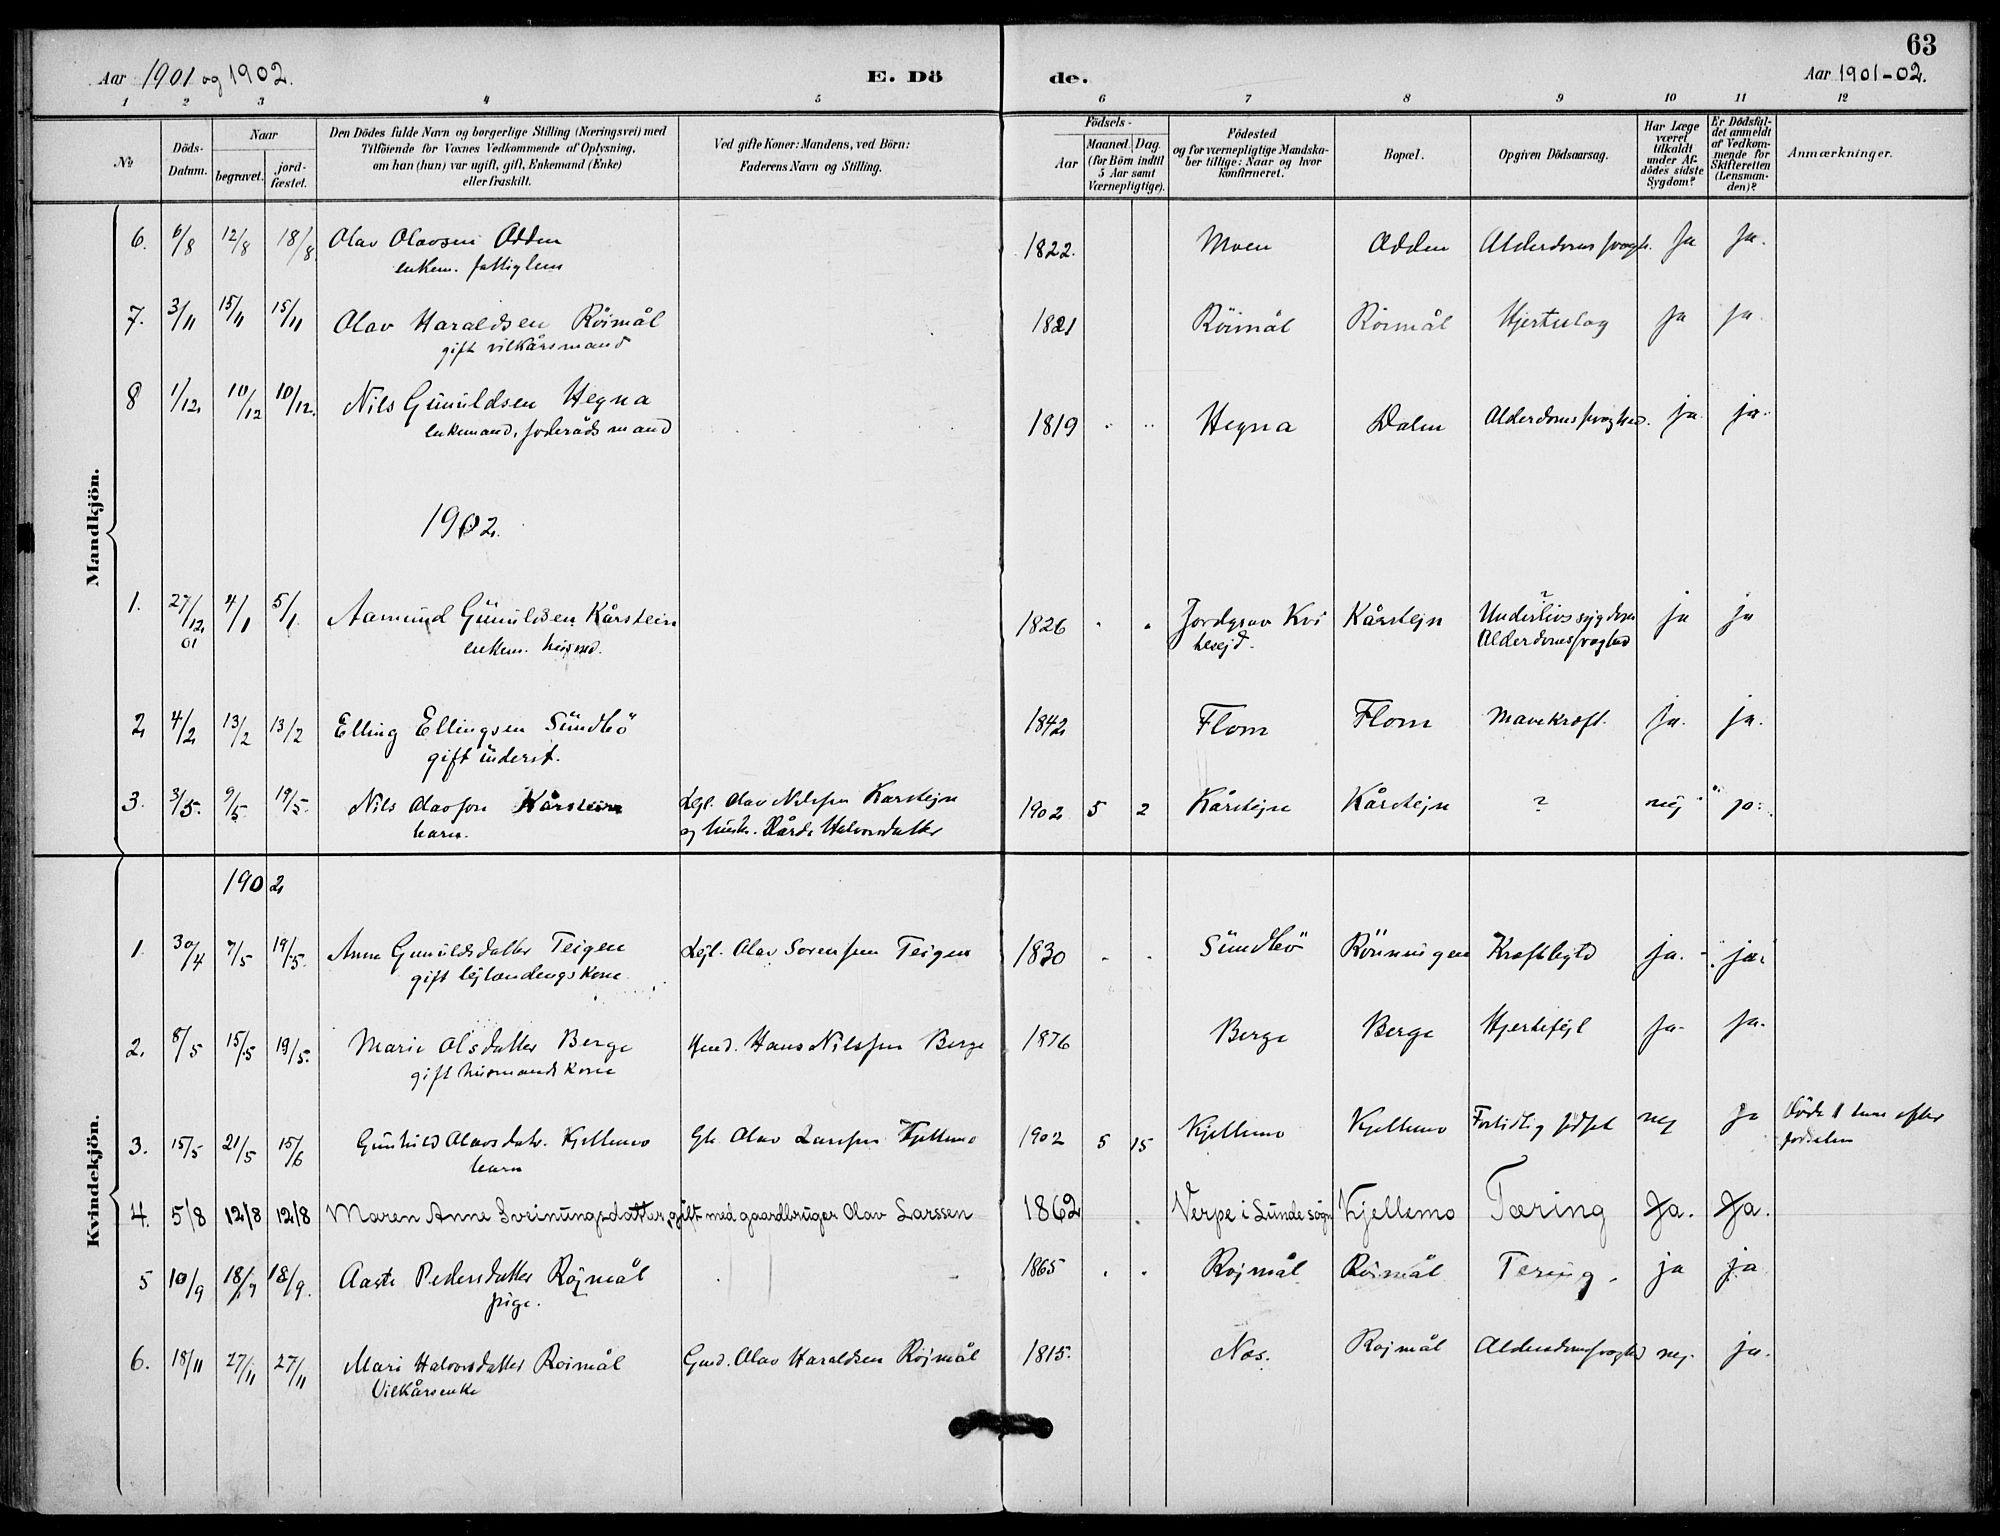 63
Aar 1901 og 1902.
E. Dö
de.
Aar 1901-02.
1 2 3 4 5 6 7 8 9 10 11 12
№
Döds-
Datum.
Naar
begravet.
jord-
fæstet.
Den Dödes fulde Navn og borgerlige Stilling (Næringsvei) med
Tilföiende for Voxnes Vedkommende af Oplysning,
om han (hun) var ugift, gift, Enkemand (Enke)
eller fraskilt.
Ved gifte Koner: Mandens, ved Börn:
Faderens Navn og Stilling.
Födsels-
Aar
Maaned. Dag.
(for Börn indtil
5 Aar samt
Værnepligtige).
Födested
og for værnepligtige Mandska-
ber tillige: Naar og hvor
konfirmeret.
Bopæl.
Opgiven Dödsaarsag.
Har Læge
været
tilkaldt
under Af-
dödes sidste
Sygdom?
Er Dödsfal-
det anmeldt
af Vedkom-
mende for
Skifteretten
(Lensman-
den)?
Anmærkninger.
Mandkjön.
6. 6/8 12/8 18/8 Olav Olavsen Ødden 1822. Moen Ødden Ja Ja.
enkem. fattiglem
7. 3/11 15/11 15/11 Olav Haraldsen Röimål 1821 Röimål Röimål Hjerteslag Ja Ja.
gift vilkårsmand
8 1/12 10/12 10/12. Nils Gunuldsen Hegna 1819 Hegna Dalen Alderdomssvaghed. ja. ja.
enkemand, foderådsmand
1902.
1. 27/12 01 4/1 5/1 Aamund Gunuldsen Kårstein 1826 Jordgrav Kvi Kårstejn Underlivssygdom ? ja ja
enkem. husmd. tesejd. Alderdomssvaghed
2 4/2 13/2 13/2 Elling Ellingsen Sundbö 1842 Flom Flom Mavekræft. Ja. ja.
gift inderst.
3. 3/5. 9/5 19/5. Nils Olavsen Kårstein Lejl. Olav Nilssen Karstejn 1902 5 2 Kårstejn Kårstejn ? nej ja.
barn. og hustr. Halvorsdatter
Kvindekjön.
1902
1. 30/4 7/5 19/5. Anne Gunuldsdatter Teigen Lejl. Olav Sorenssen Teigen 1830 Sundbö Rönningen Kræftbyld ja. ja.
gift lejlændingskone
2. 8/5 15/5 19/5. Marie Olsdatter Berge Hmd. Hans Nilssen Berge 1876 Berge Berge Hjertefejl Ja. Ja.
gift husmandskone
3. 15/5 21/5 15/6 Gunhild Olavsdatr. Kjellemo Gb. Olav Larssen Kjellemo 1902 5 15 Kjellemo Kjellemo Fortidlig födsel nej Ja Döde 1 time efter
barn fødselen
4. 5/8 12/8 12/8 Maren Anne Sveinungsdatter, gift med gaardbruger Olav Larssen 1862 Verpe i Lunde sogn Kjellemo Tæring Ja. Ja.
5 10/9 18/9 18/9. Aaste Pedersdatter Röjmål 1865 Rojmål Röimål Tæring. ja ja
pige.
6. 18/11 27/11 27/11 Mari Halvorsdatter Roimål Gmd. Olav Haraldsen Röjmål 1815. Nas. Rojmål Alderdomssvaghed nej. ja.
Vilkårsenke